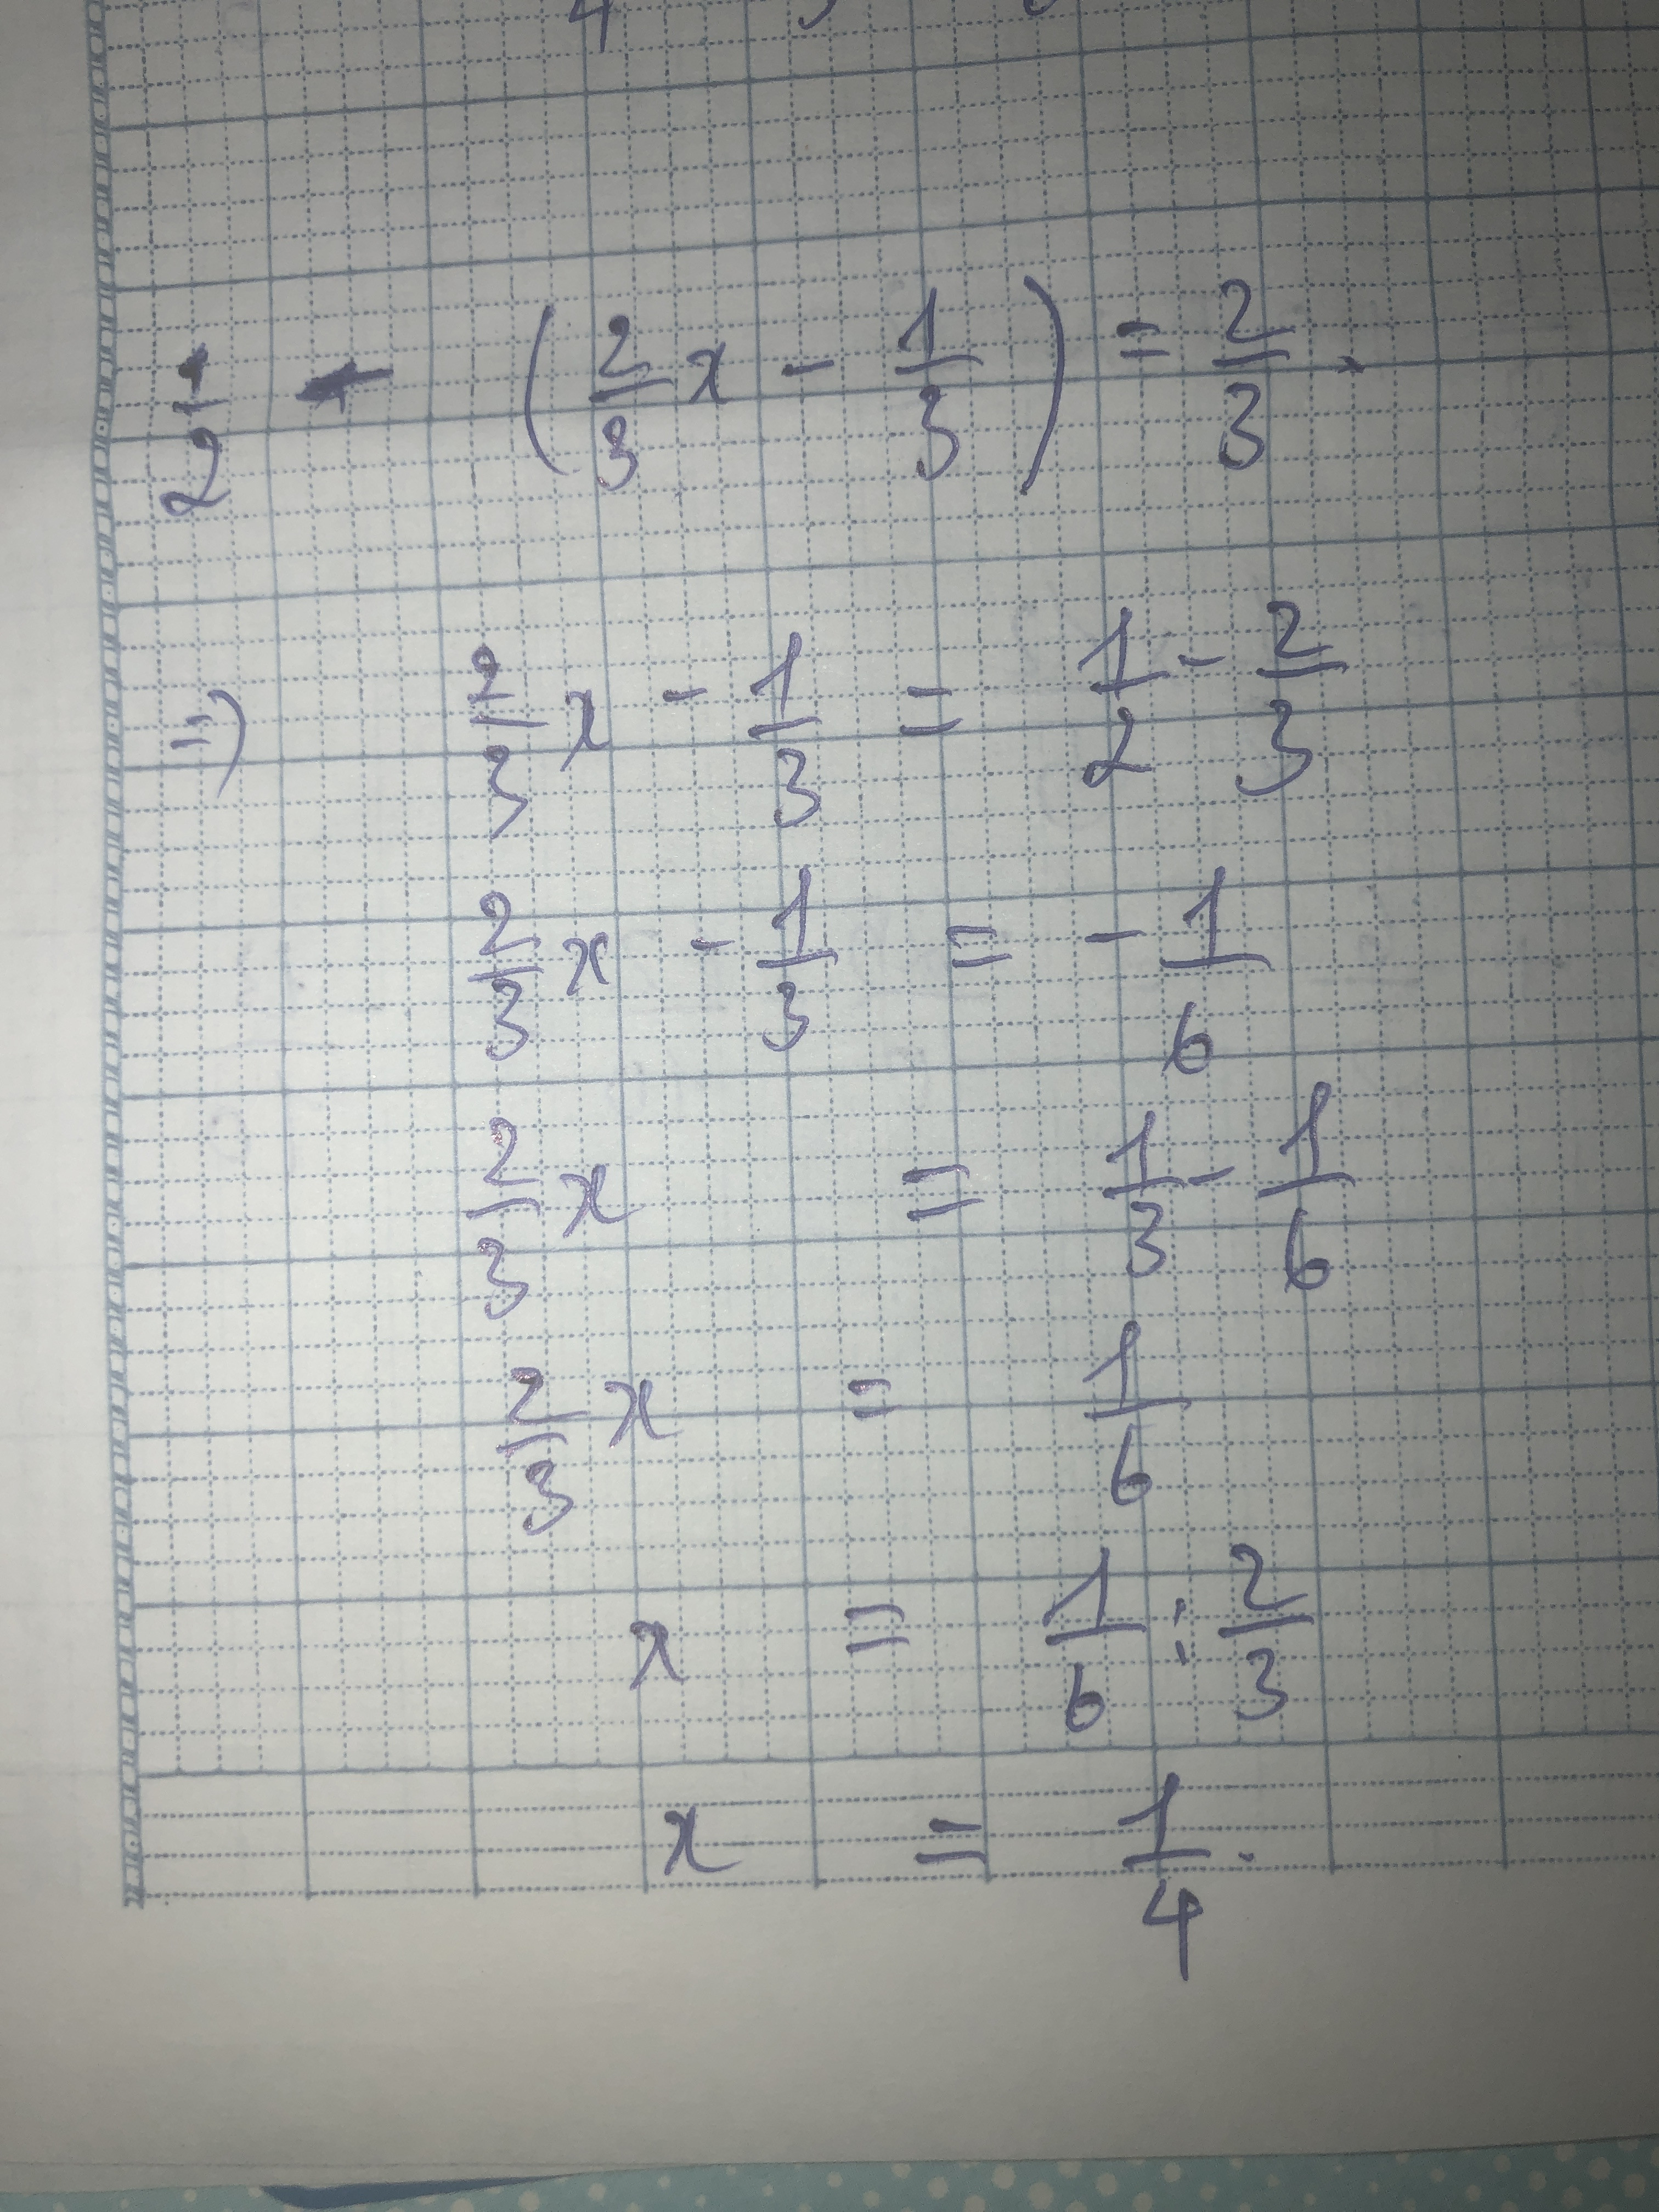 4
1/2 - (2/3 x - 1/3) = 2/3.
=) 2/3 x - 1/3 = 1/2 - 2/3
2/3 x - 1/3 = - 1/6
2/3 x = 1/3 - 1/6
2/3 x = 1/6
x = 1/6 : 2/3
x = 1/4.